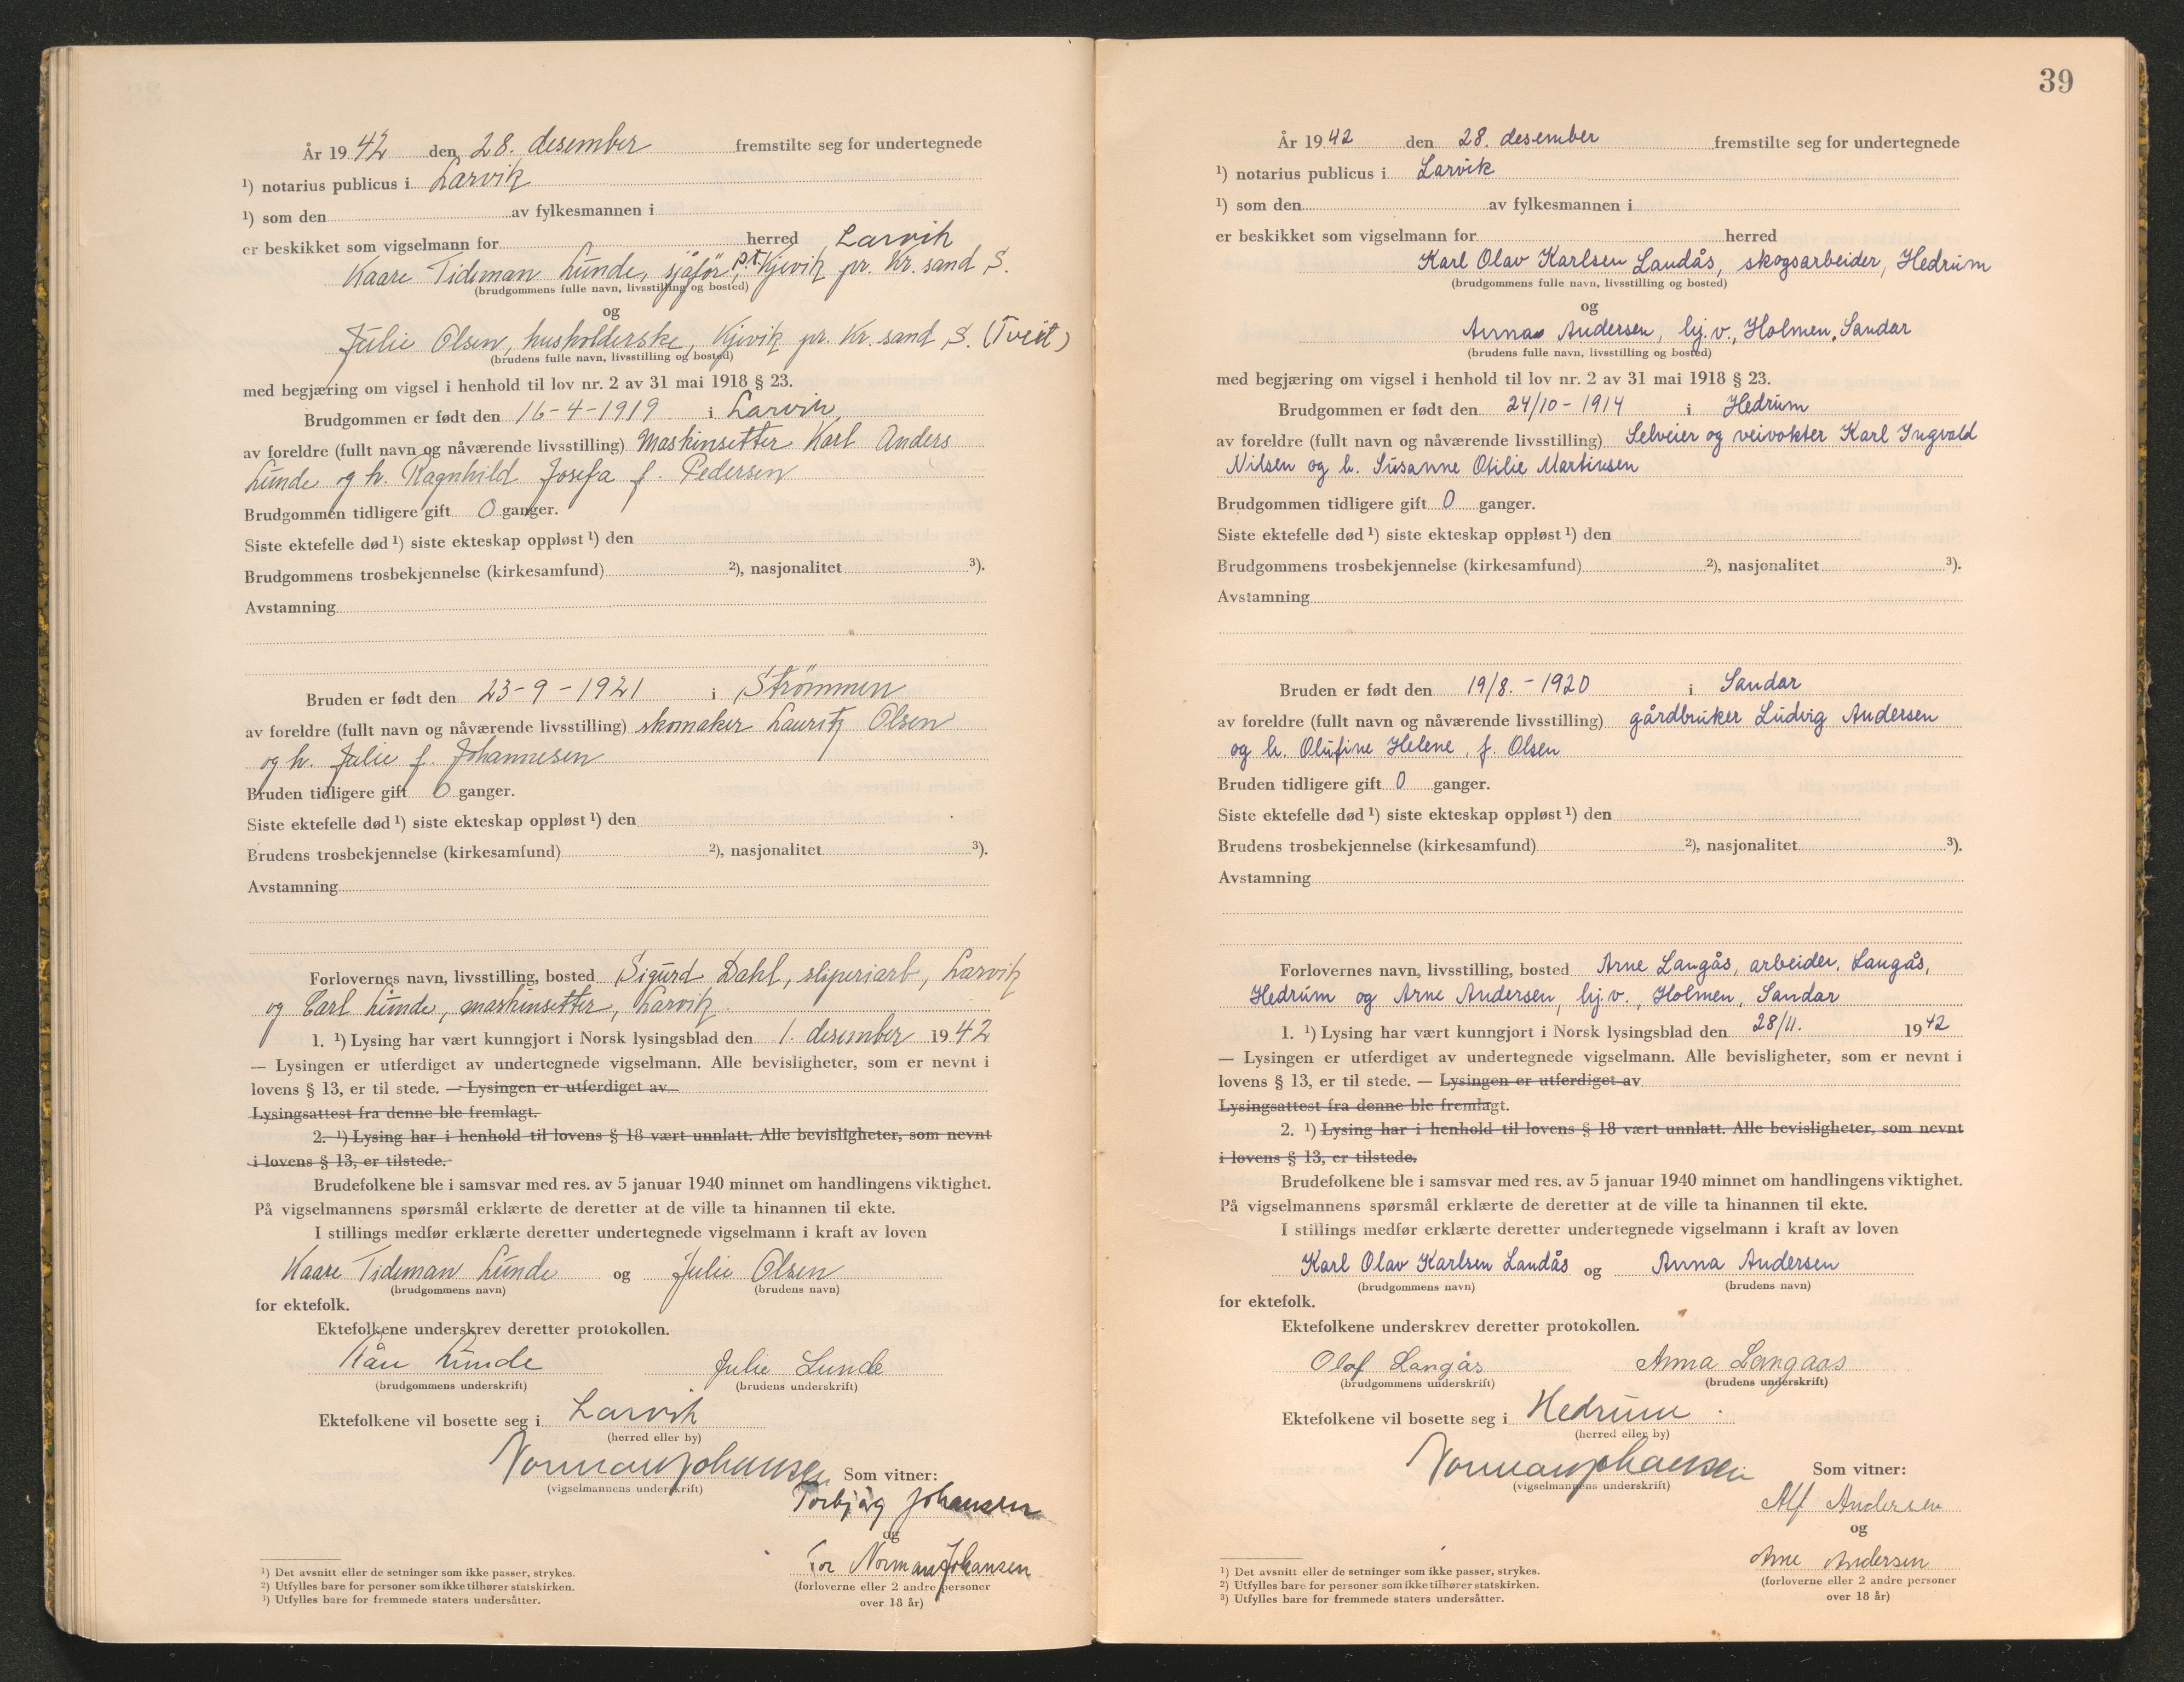 År 1942 den 28. desember fremstilte seg for undertegnede
¹) notarius publicus i Larvik
¹) som den av fylkesmannen i
er beskikket som vigselmann for herred Larvik
Kaare Tideman Lunde, sjåfør, p.t. Kjevik pr. Kr. sand S.
(brudgommens fulle navn, livsstilling og bosted)
og
Julie Olsen, husholderske, Kjevik pr. Kr. sand S. (Tveit)
(brudens fulle navn, livsstilling og bosted)
med begjæring om vigsel i henhold til lov nr. 2 av 31 mai 1918 § 23.
Brudgommen er født den 16-4-1919 i Larvik,
av foreldre (fullt navn og nåværende livsstilling) Maskinsetter Karl Anders
Lunde og h. Ragnhild Josefa f. Pedersen
Brudgommen tidligere gift 0 ganger.
Siste ektefelle død ¹) siste ekteskap oppløst ¹) den
Brudgommens trosbekjennelse (kirkesamfund) ²), nasjonalitet ³).
Avstamning
Bruden er født den 23-9-1921 i Strømmen
av foreldre (fullt navn og nåværende livsstilling) skomaker Lauritz Olsen
og h. Julie f. Johannesen
Bruden tidligere gift 0 ganger.
Siste ektefelle død ¹) siste ekteskap oppløst ¹) den
Brudens trosbekjennelse (kirkesamfund) ²), nasjonalitet ³).
Avstamning
Forlovernes navn, livsstilling, bosted Sigurd Dahl, sliperiarb, Larvik
og Carl Lunde, maskinsetter, Larvik.
1. ¹) Lysing har vært kunngjort i Norsk lysingsblad den 1. desember 1942
— Lysingen er utferdiget av undertegnede vigselmann. Alle bevisligheter, som er nevnt i
lovens § 13, er til stede. — Lysingen er utferdiget av
Lysingsattest fra denne ble fremlagt.
2. ¹) Lysing har i henhold til lovens § 18 vært unnlatt. Alle bevisligheter, som nevnt
i lovens § 13, er tilstede.
Brudefolkene ble i samsvar med res. av 5 januar 1940 minnet om handlingens viktighet.
På vigselmannens spørsmål erklærte de deretter at de ville ta hinannen til ekte.
I stillings medfør erklærte deretter undertegnede vigselmann i kraft av loven
Kaare Tideman Lunde og Julie Olsen
(brudgommens navn) (brudens navn)
for ektefolk.
Ektefolkene underskrev deretter protokollen.
Kåre Lunde Julie Lunde
(brudgommens underskrift) (brudens underskrift)
Ektefolkene vil bosette seg i Larvik
(herred eller by)
Norman Johansen Som vitner:
(vigselmannens underskrift)
Torbjørg Johansen
og
Tor Norman Johansen
(forloverne eller 2 andre personer
over 18 år)
¹) Det avsnitt eller de setninger som ikke passer, strykes.
²) Utfylles bare for personer som ikke tilhører statskirken.
³) Utfylles bare for fremmede staters undersåtter.
39
År 1942 den 28. desember fremstilte seg for undertegnede
¹) notarius publicus i Larvik
¹) som den av fylkesmannen i
er beskikket som vigselmann for herred
Karl Olav Karlsen Landås, skogsarbeider, Hedrum
(brudgommens fulle navn, livsstilling og bosted)
og
Anna Andersen, hj.v., Holmen, Sandar
(brudens fulle navn, livsstilling og bosted)
med begjæring om vigsel i henhold til lov nr. 2 av 31 mai 1918 § 23.
Brudgommen er født den 24/10 - 1914 i Hedrum
av foreldre (fullt navn og nåværende livsstilling) Selveier og veivokter Karl Ingvald
Nilsen og h. Susanne Otilie Martinsen
Brudgommen tidligere gift 0 ganger.
Siste ektefelle død ¹) siste ekteskap oppløst ¹) den
Brudgommens trosbekjennelse (kirkesamfund) ²), nasjonalitet ³).
Avstamning
Bruden er født den 19/8. - 1920 i Sandar
av foreldre (fullt navn og nåværende livsstilling) gårdbruker Ludvig Andersen
og h. Olufine Helene, f. Olsen
Bruden tidligere gift 0 ganger.
Siste ektefelle død ¹) siste ekteskap oppløst ¹) den
Brudens trosbekjennelse (kirkesamfund) ²), nasjonalitet ³).
Avstamning
Forlovernes navn, livsstilling, bosted Arne Langås, arbeider, Langås,
Hedrum og Arne Andersen, hj.v., Holmen, Sandar
1. ¹) Lysing har vært kunngjort i Norsk lysingsblad den 28/11. 1942
— Lysingen er utferdiget av undertegnede vigselmann. Alle bevisligheter, som er nevnt i
lovens § 13, er til stede. — Lysingen er utferdiget av
Lysingsattest fra denne ble fremlagt.
2. ¹) Lysing har i henhold til lovens § 18 vært unnlatt. Alle bevisligheter, som nevnt
i lovens § 13, er tilstede.
Brudefolkene ble i samsvar med res. av 5 januar 1940 minnet om handlingens viktighet.
På vigselmannens spørsmål erklærte de deretter at de ville ta hinannen til ekte.
I stillings medfør erklærte deretter undertegnede vigselmann i kraft av loven
Karl Olav Karlsen Landås og Anna Andersen
(brudgommens navn) (brudens navn)
for ektefolk.
Ektefolkene underskrev deretter protokollen.
Olaf Langås Anna Langaas
(brudgommens underskrift) (brudens underskrift)
Ektefolkene vil bosette seg i Hedrum.
(herred eller by)
Norman Johansen Som vitner:
(vigselmannens underskrift)
Alf Andersen
og
Arne Andersen
(forloverne eller 2 andre personer
over 18 år)
¹) Det avsnitt eller de setninger som ikke passer, strykes.
²) Utfylles bare for personer som ikke tilhører statskirken.
³) Utfylles bare for fremmede staters undersåtter.